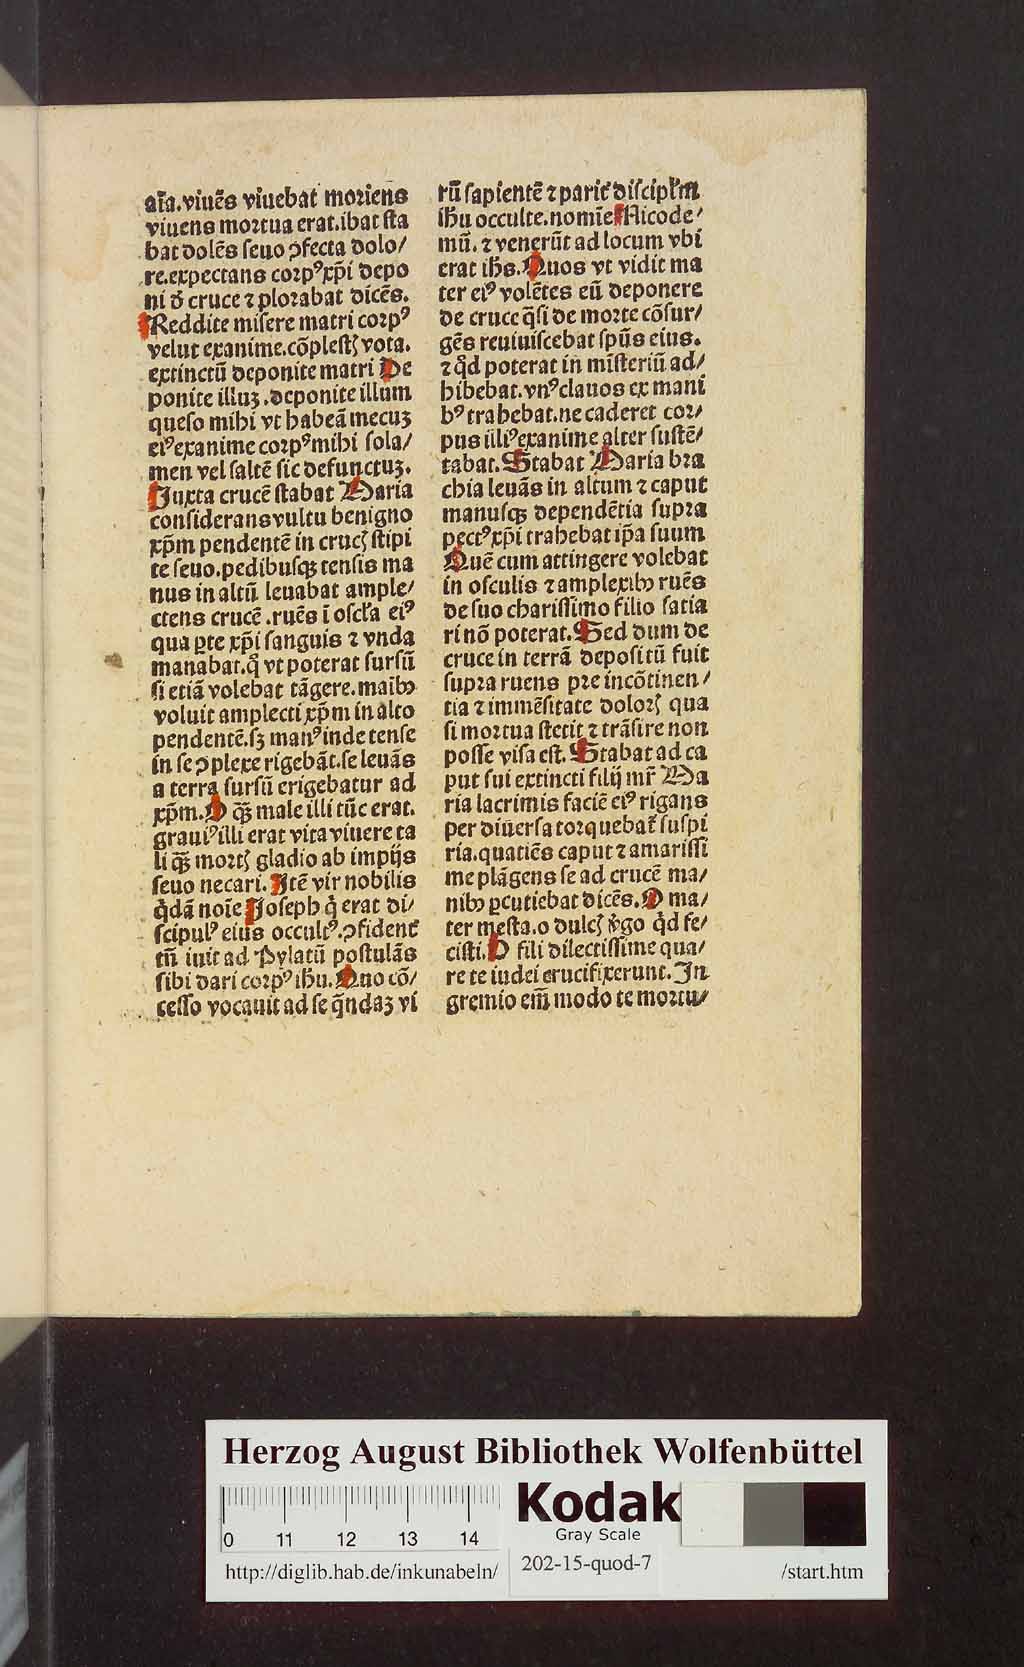 aīa. viuēs viuebat moriens
viuens mortua erat. ibat sta
bat dolēs seuo ꝯfecta dolo/
re. expectans corpꝰ xp̄i depo
ni đ cruce ⁊ plorabat dicēs.
Reddite misere matri corpꝰ
velut exanime. cōplestꝭ vota.
extinctū deponite matri De
ponite illuꝫ. deponite illum
queso mihi vt habeā mecuꝫ
eiꝰ exanime corpꝰ mihi sola/
men vel saltē sic defunctuꝫ.
Juxta crucē stabat Maria
considerans vultu benigno
xp̄m pendentē in crucꝭ stipi
te seuo. pedibusqꝫ tensis ma
nus in altū leuabat ample/
ctens crucē. ruēs ī oscl̄a eiꝰ
qua ꝑte xp̄i sanguis ⁊ vnda
manabat. q̄ vt poterat sursū
si etiā volebat tāgere. maībꝰ
voluit amplecti xp̄m in alto
pendentē. sꝫ manꝰ inde tense
in se ꝯplexe rigebāt. se leuās
a terra sursū erigebatur ad
xp̄m. O qꝫ̄ male illi tūc erat.
grauiꝰ illi erat vita viuere ta
li qꝫ̄ mortꝭ gladio ab impijs
seuo necari. Jtē vir nobilis
q̇dā noīe Joseph q̇ erat di/
scipulꝰ eius occultꝰ. ꝯfident̄
tū iuit ad Pylatū postulās
sibi dari corpꝰ ihū. Quo cō/
cesso vocauit ad se q̄ndaꝫ vi
rū sapientē ⁊ parit̄ discipl̄m
ihū occulte. nomīe Nicode/
mū. ⁊ venerūt ad locum vbi
erat ihs̄. Quos vt vidit ma
ter eiꝰ volētes eū deponere
de cruce q̄si de morte cōsur/
gēs reuiuiscebat spūs eius.
⁊ q̇d poterat in mīsteriū ad/
hibebat. vnꝰ clauos ex mani
bꝰ trahebat. ne caderet cor/
pus illiꝰ exanime alter sustē/
tabat. Stabat Maria bra
chia leuās in altum ⁊ caput
manusqꝫ dependētia supra
pectꝰ xp̄i trahebat ip̄a suum
Quē cum attingere volebat
in osculis ⁊ amplexibꝰ ruēs
de suo charissimo filio satia
ri nō poterat. Sed dum de
cruce in terrā depositū fuit
supra ruens pre incōtinen/
tia ⁊ immēsitate dolorꝭ qua
si mortua stetit ⁊ trāsire non
posse visa est. Stabat ad ca
put sui extincti filij mr̄ Ma
ria lacrimis faciē eiꝰ rigans
per diuersa torquebat̄ suspi
ria. quatiēs caput ⁊ amarissi
me plāgens se ad crucē ma/
nibꝰ ꝑcutiebat dicēs. O ma/
ter mesta. o dulcꝭ v̄go q̇d fe/
cisti. O fili dilectissime qua/
re te iudei crucifixerunt. Jn
gremio em̄ modo te mortu/
Herzog August Bibliothek Wolfenbüttel
0 11 12 13 14
Kodak
Gray Scale
http://diglib.hab.de/inkunabeln/
202-15-quod-7
/start.htm